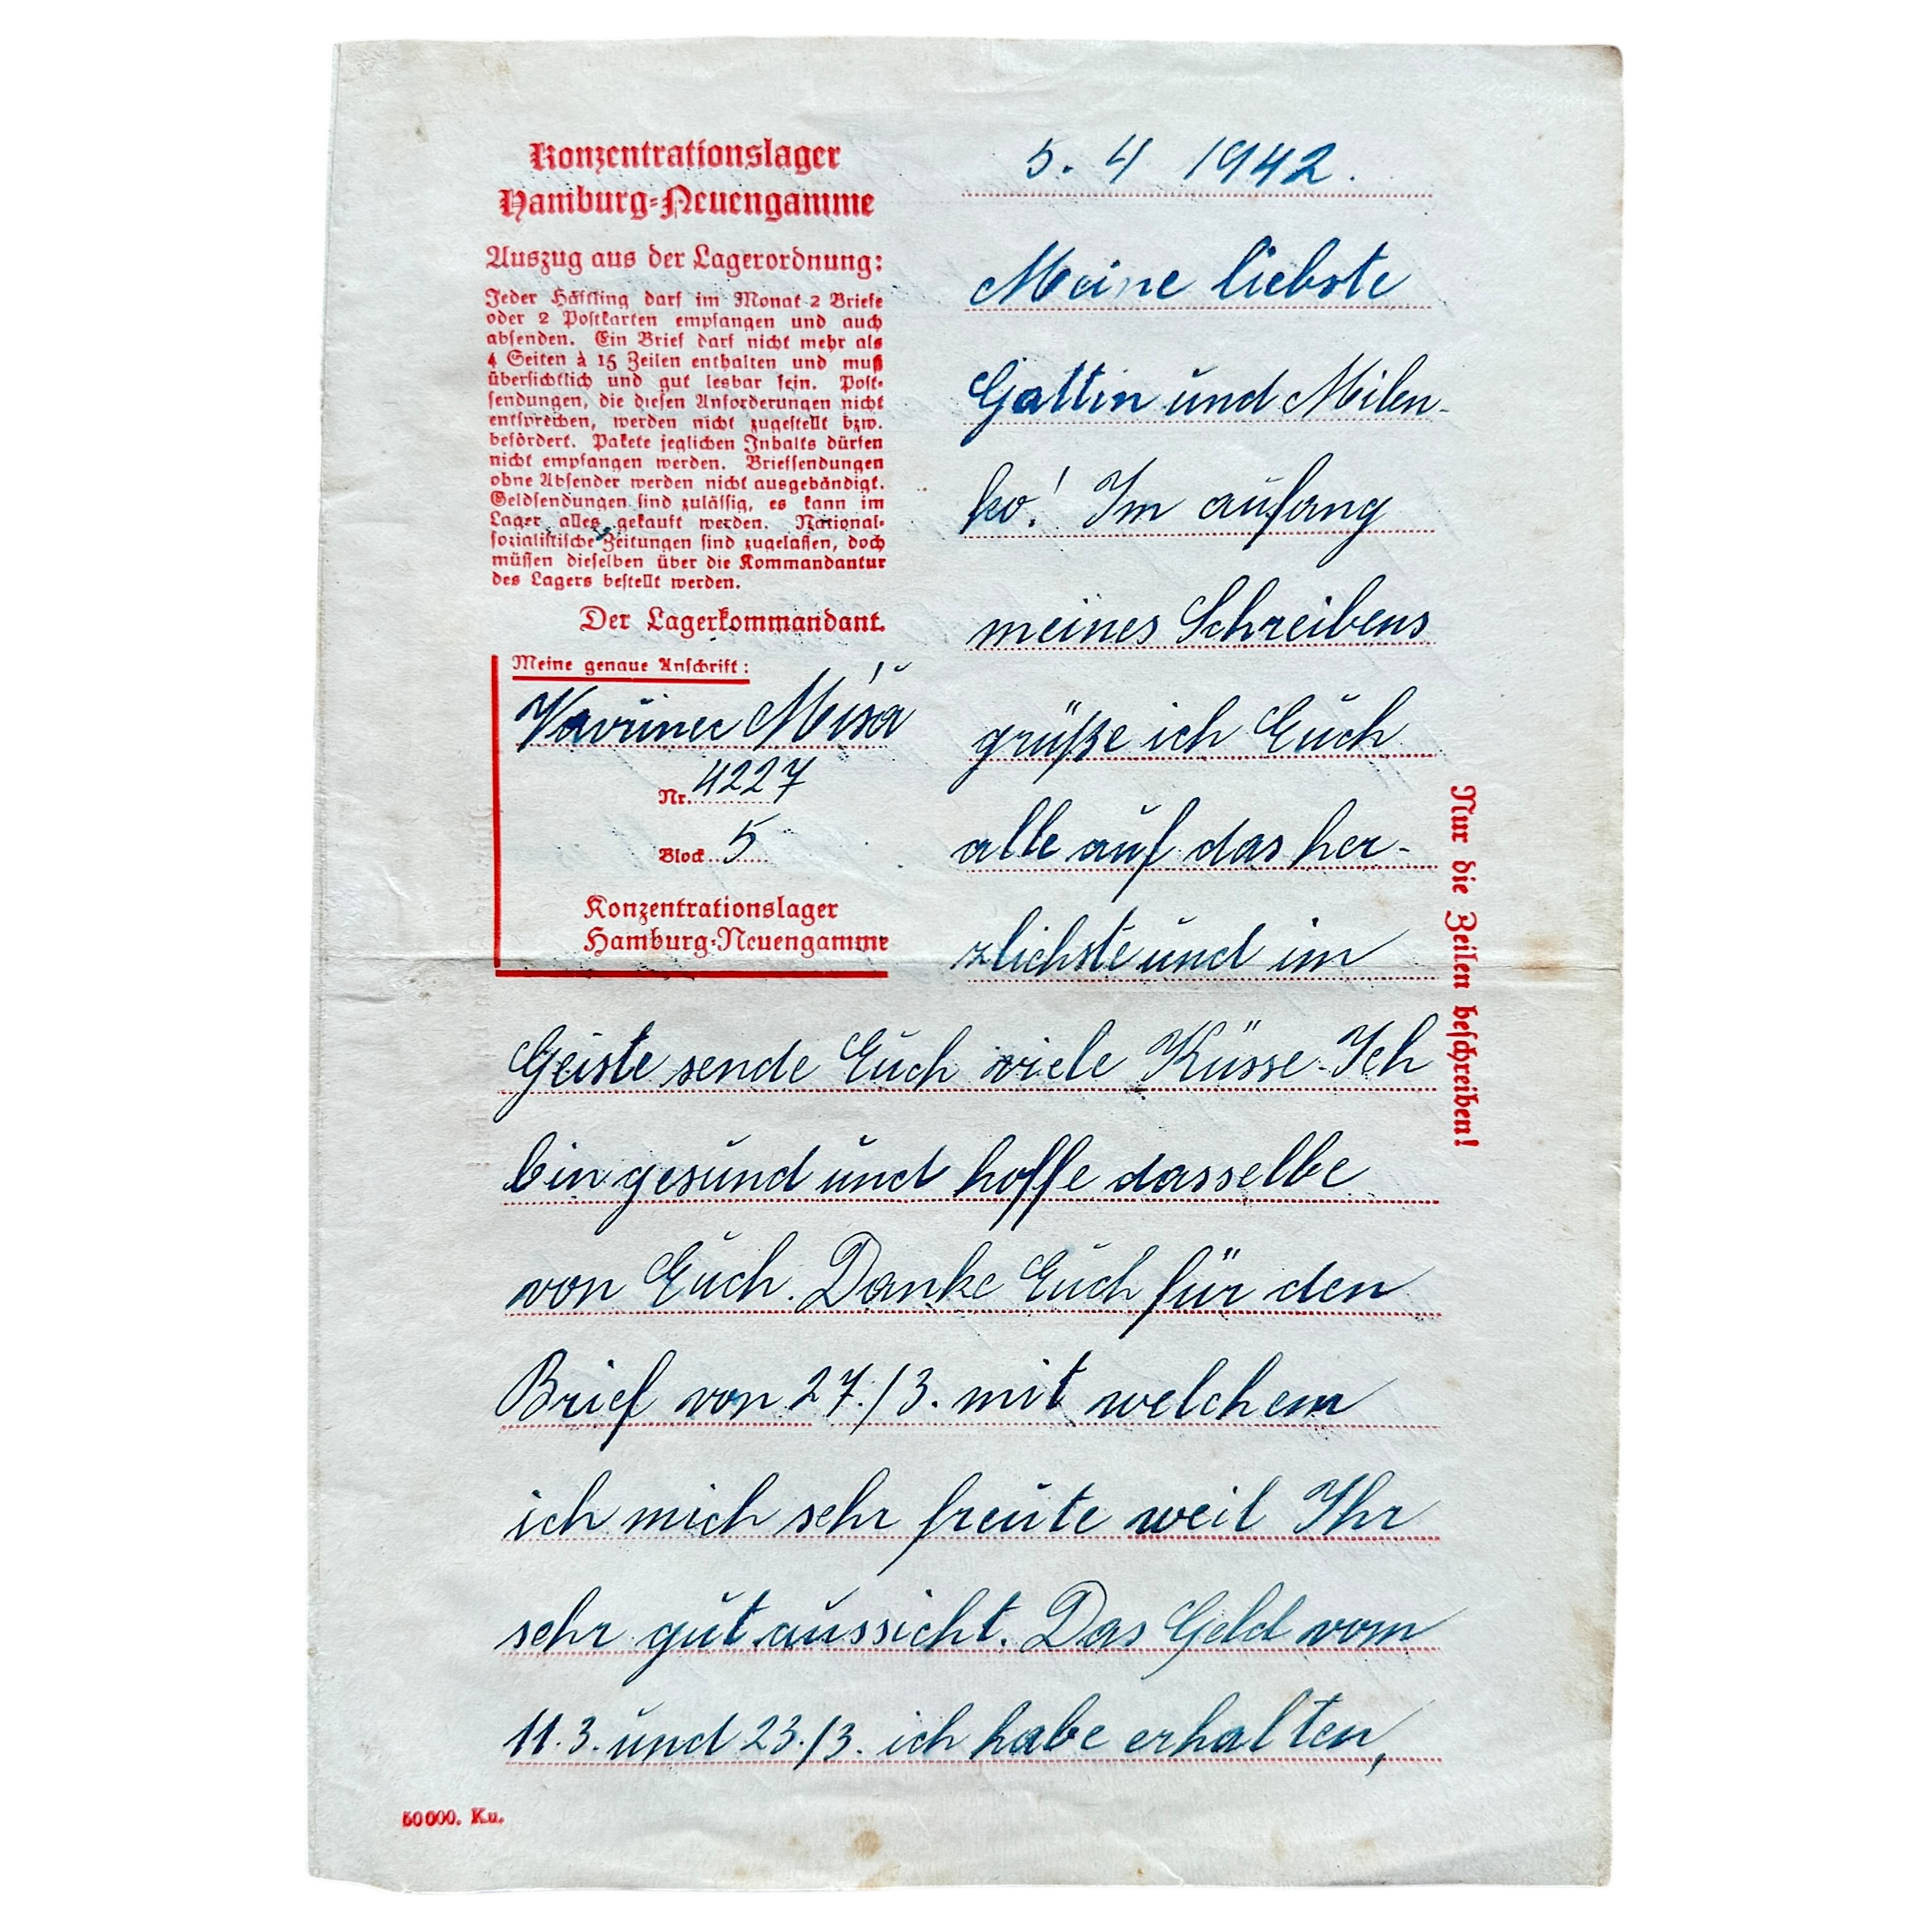 Konzentrationslager
Hamburg-Neuengamme
Auszug aus der Lagerordnung:
Jeder Häftling darf im Monat 2 Briefe
oder 2 Postkarten empfangen und auch
absenden. Ein Brief darf nicht mehr als
4 Seiten à 15 Zeilen enthalten und muß
übersichtlich und gut lesbar sein. Post-
sendungen, die diesen Anforderungen nicht
entsprechen, werden nicht zugestellt bzw.
befördert. Pakete jeglichen Inhalts dürfen
nicht empfangen werden. Briefsendungen
ohne Absender werden nicht ausgehändigt.
Geldsendungen sind zulässig, es kann im
Lager alles gekauft werden. National-
sozialistische Zeitungen sind zugelassen, doch
müssen dieselben über die Kommandantur
des Lagers bestellt werden.
Der Lagerkommandant.
Meine genaue Anschrift:
Vavřinec Míša
Nr. 4227
Block 5
Konzentrationslager
Hamburg-Neuengamme
5. 4 1942.
Meine liebste
Gattin und Milen-
ko! Im anfang
meines Schreibens
grüße ich Euch
alle auf das her-
zlichste und im
Geiste sende Euch viele Küsse. Ich
bin gesund und hoffe dasselbe
von Euch. Danke Euch für den
Brief von 27./3. mit welchem
ich mich sehr freute weil Ihr
sehr gut aussicht. Das Geld vom
11.3. und 23./3. ich habe erhalten,
Nur die Zeilen beschreiben!
50000. Ku.